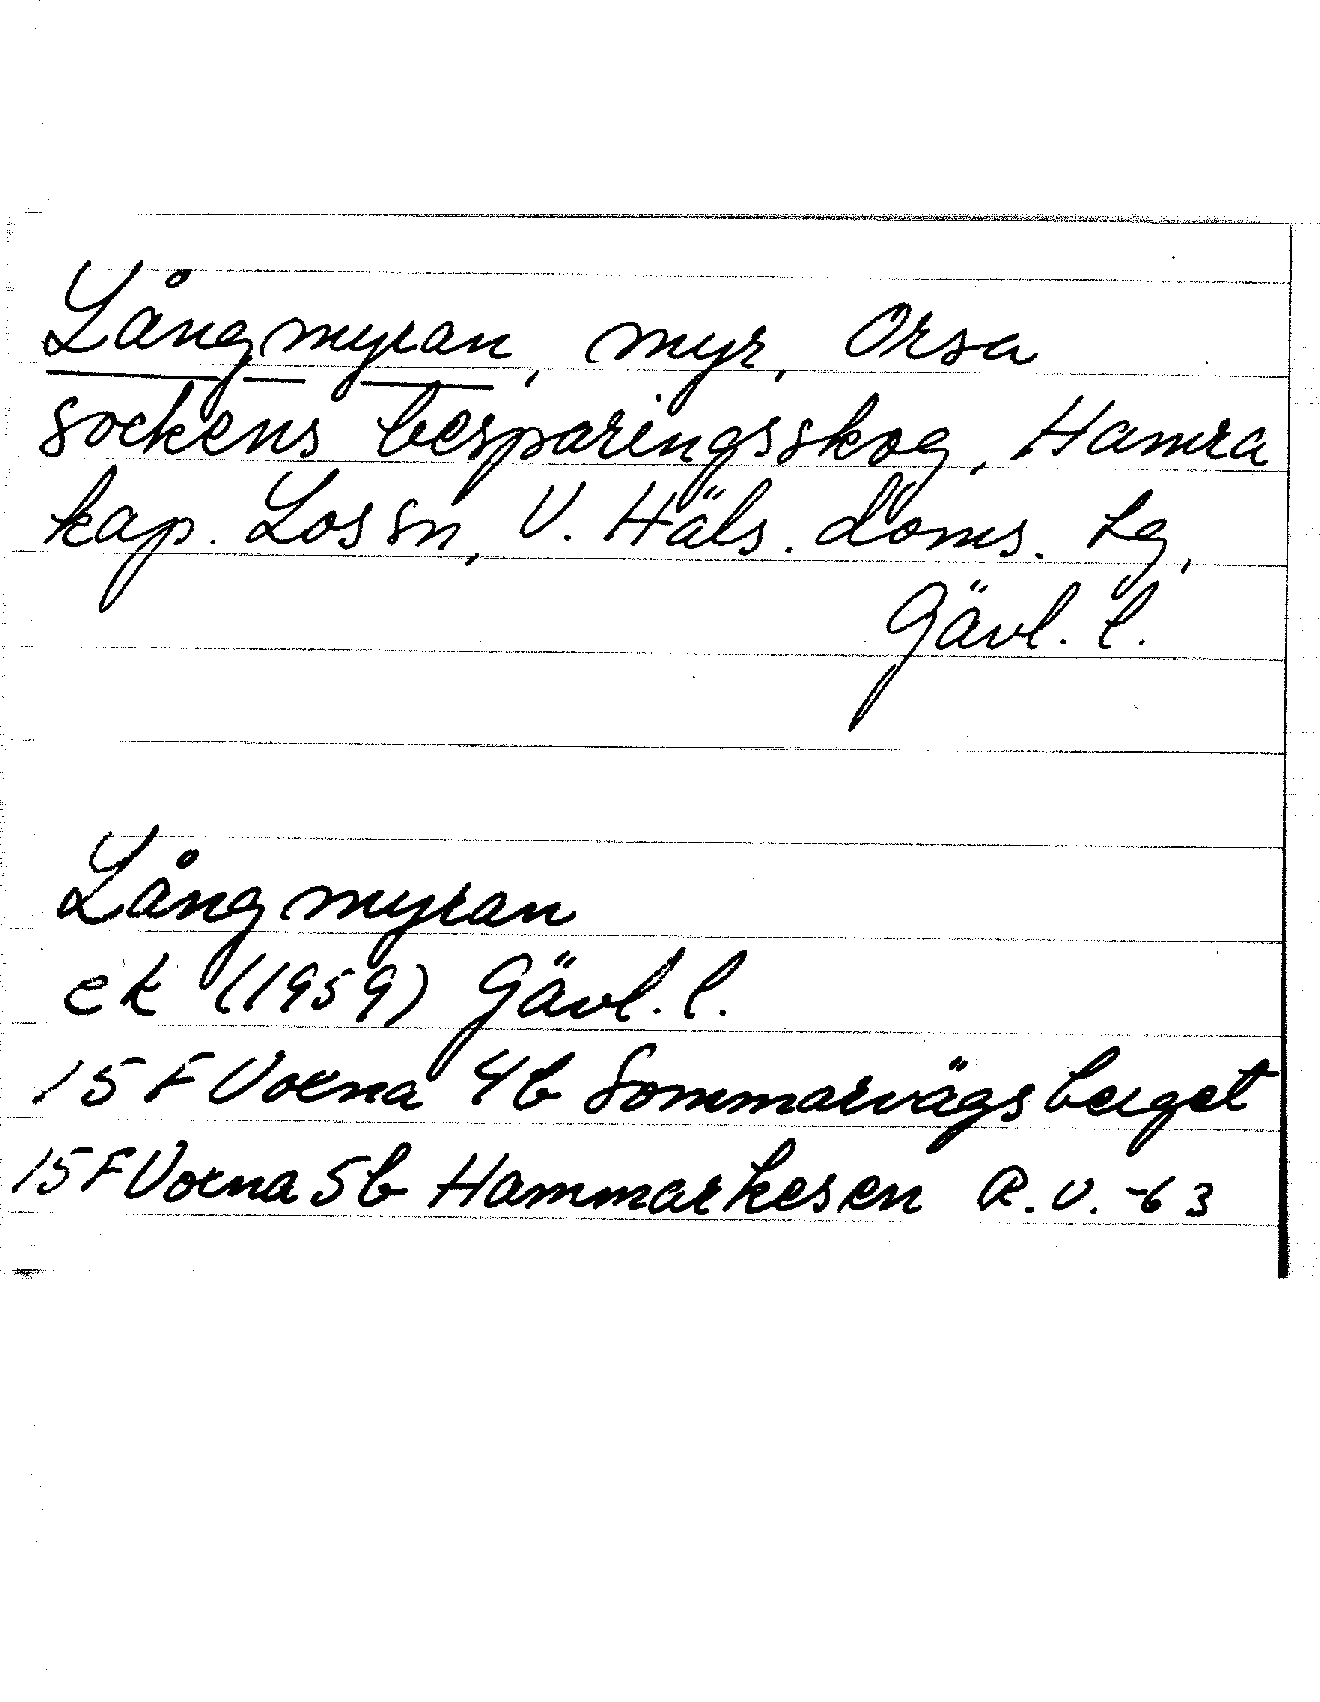 Långmyran, myr, Orsa
sockens besparingsskog, Hamra
kap. Los sn, V. Häls. doms. tg,
Gävl. l.
Långmyran
ek (1959) Gävl. l.
15 F Voxna 4b Sommarvägsberget
15 F Voxna 5b Hammarkesen R.V. -63